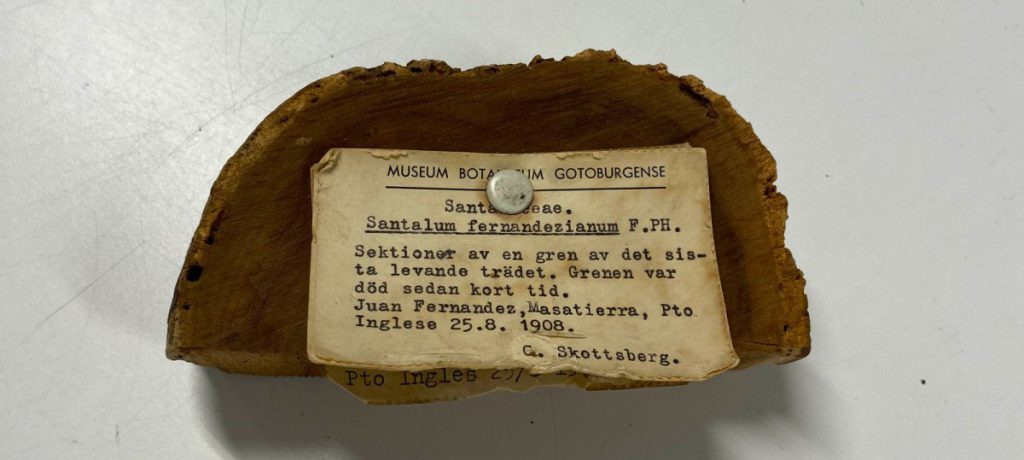 MUSEUM GOTOBURGENSE
Santalum fernandezianum F.PH.
Sektioner av en gren av det sis-
ta levande trädet. Grenen var
död sedan kort tid.
Juan Fernandez,Masatierra, Pto
Inglese 25.8. 1908.
C. Skottsberg.
Pto Ingles